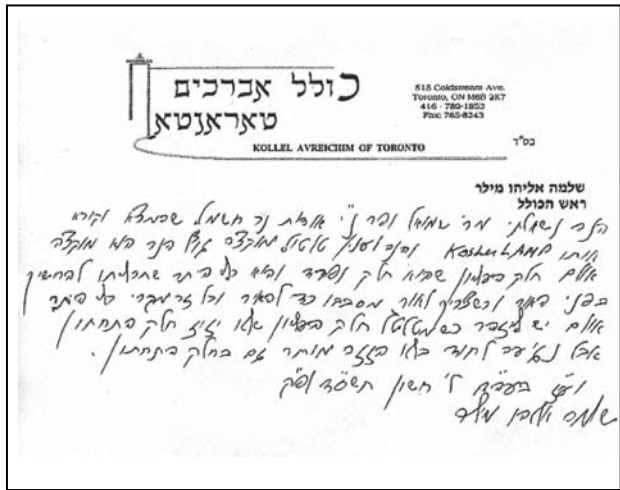 כולל אברכים
טאראנטא
KOLLEL AVREICHIM OF TORONTO
515 Coldstream Ave.
Toronto, ON M6B 2K7
416 - 789-1853
Fax: 765-8243
בס"ד
שלמה אליהו מילר
ראש הכולל
הנה נשאלתי מר' שמואל נ"י אודות נר חשמל שהמציא וקורא
אותו Kosher LAMP והנה לענין טלטול מוקצה גוף הנר הוא מוקצה
אולם חלק העליון שהוא חלק נפרד הוא כלי היתר שתכליתו להחשיך
בפני האור וכשצריך לאור מסבבו כדי להאיר וכל זה כלי היתר
אולם יש ליזהר כשמטלטל חלק העליון שלא יזיז חלק התחתון
אבל נגיעה לחוד בלא הזזה מותר גם בחלק התחתון.
בעה"ח ל' חשון תשס"ד לפ"ק
שלמה אליהו מילר